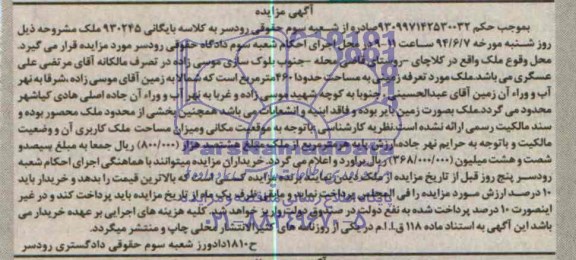 آگهی مزایده
بموجب حکم ۹۳۰۹۹۷۱۴۲۵۳۰۰۳۲ صادره از شعبه سوم حقوقی رودسر به کلاسه بایگانی ۹۳۰۲۴۵ ملک مشروحه ذیل
روز شنبه مورخه ۹۴/۶/۷ ساعت ۱۱-۹ در محل اجرای احکام شعبه سوم دادگاه حقوقی رودسر مورد مزایده قرار می گیرد.
محل وقوع ملک واقع در کلاچای -روستای قاضی محله -جنوب بلوک سازی موسی زاده در تصرف مالکانه آقای مرتضی علی
عسگری می باشد.ملک مورد تعرفه زمینی به مساحت حدودا ۴۶۰ مترمربع است که شمالا به زمین آقای موسی زاده ،شرقا به نهر
آب و وراء آن زمین آقای عبدالحسینی ، جنوبا به کوچه شهید موسی زاده و غربا به نهر آب و وراء آن جاده اصلی هادی کیاشهر
محدود می گردد.ملک بصورت زمین بایر بوده و فاقد ابنیه و انشعابات می باشد همچنین بخشی از محدود ملک محصور بوده و
سند مالکیت رسمی ارائه نشده است.نظریه کارشناسی :باتوجه به موقعیت مکانی ومیزان مساحت ملک کاربری آن و وضعیت
مالکیت و باتوجه به حریم نهر جاده ارزش پایه هر مترمربع از ملک مبلغ هشتصد هزار (۸۰۰/۰۰۰) ریال جمعا به مبلغ سیصدو
شصت و هشت میلیون (۳۶۸/۰۰۰/۰۰۰) ریال براورد و اعلام می گردد.خریداران مزایده میتوانند با هماهنگی اجرای احکام شعبه
رودسر پنج روز قبل از تاریخ مزایده از ملک دیدن نمایند برنده مزایده کسی است که بالاترین قیمت را بدهد و خریدار باید
۱۰ درصد ارزش مورد مزایده را فی المجلس پرداخت نماید و مابقی ظرف یک ماه از تاریخ مزایده باید پرداخت کند و در غیر
اینصورت ۱۰ درصد پرداخت شده به نفع دولت در صندوق دولت واریز خواهد شد. کلیه هزینه های اجرایی بر عهده خریدار می
باشد این آگهی به استناد ماده ۱۱۸ ق.ا.ا.م در یکی از روزنامه های کثیرالانتشار محلی چاپ و منتشر میگردد.
ح۱۸۱۰ دادورز شعبه سوم حقوقی دادگستری رودسر